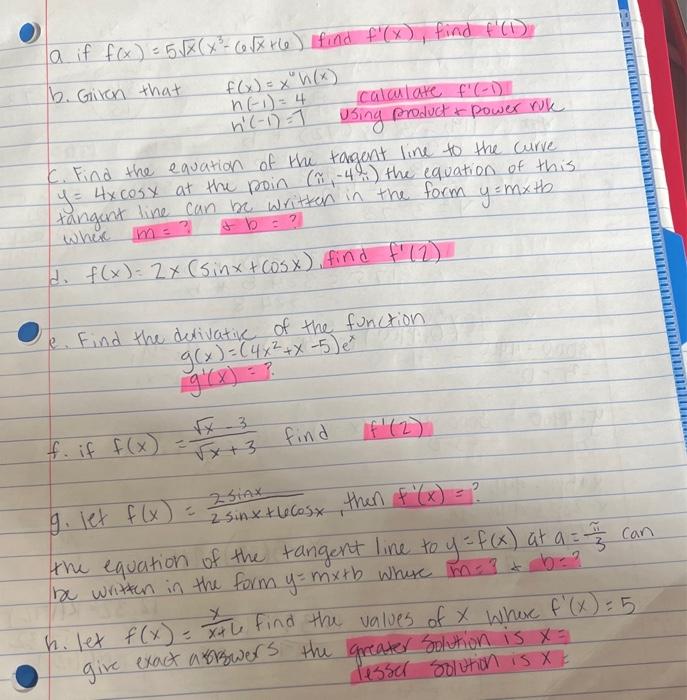 a. if f(x) = 5√x(x³ - 6√x+6) find f'(x), find f'(1)
b. Given that f(x) = x⁴h(x)
h(-1) = 4 calculate f'(-1)
h'(-1) = 7 using product + power rule
c. Find the equation of the tangent line to the curve
y = 4xcosx at the poin (π, -4π) the equation of this
tangent line can be written in the form y=mx+b
where m = ? + b = ?
d. f(x) = 2x(sinx+cosx), find f'(2)
e. Find the derivative of the function
g(x) = (4x²+x-5)eˣ
g'(x) = ?
f. if f(x) = √x - 3 / √x + 3 find f'(2)
g. let f(x) = 2sinx / 2sinx+6cosx, then f'(x) = ?
the equation of the tangent line to y=f(x) at a = π/3 can
be written in the form y=mx+b where m=? + b=?
h. let f(x) = x / x+6 find the values of x where f'(x) = 5
give exact answers the greater solution is x =
lesser solution is x =